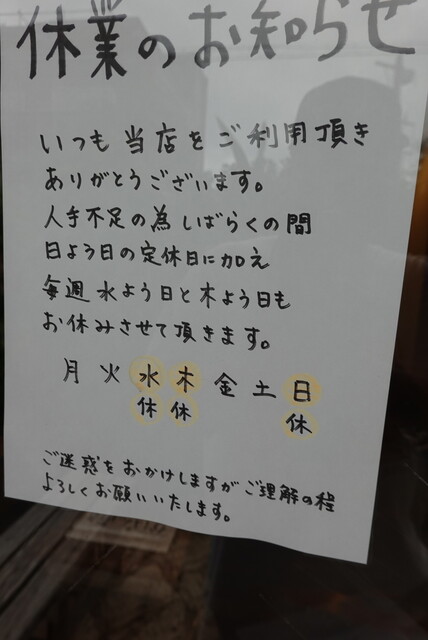 休業のお知らせ
いつも当店をご利用頂き
ありがとうございます。
人手不足の為しばらくの間
日よう日の定休日に加え
毎週水よう日と木よう日も
お休みさせて頂きます。
月 火 水 木 金 土 日
休 休 休
ご迷惑をおかけしますがご理解の程
よろしくお願いいたします。